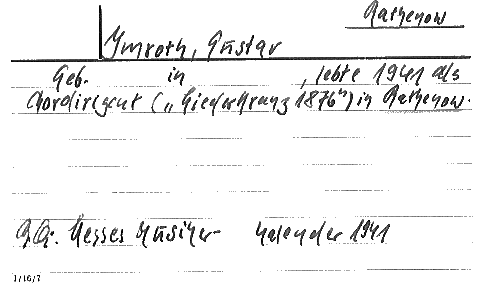 Rathenow
Imroth, Gustav
Geb. in , lebte 1941 als
Chordirigent („Liederkranz 1876“) in Rathenow.
Q.: Hesses Musiker- Kalender 1941
1/16/7